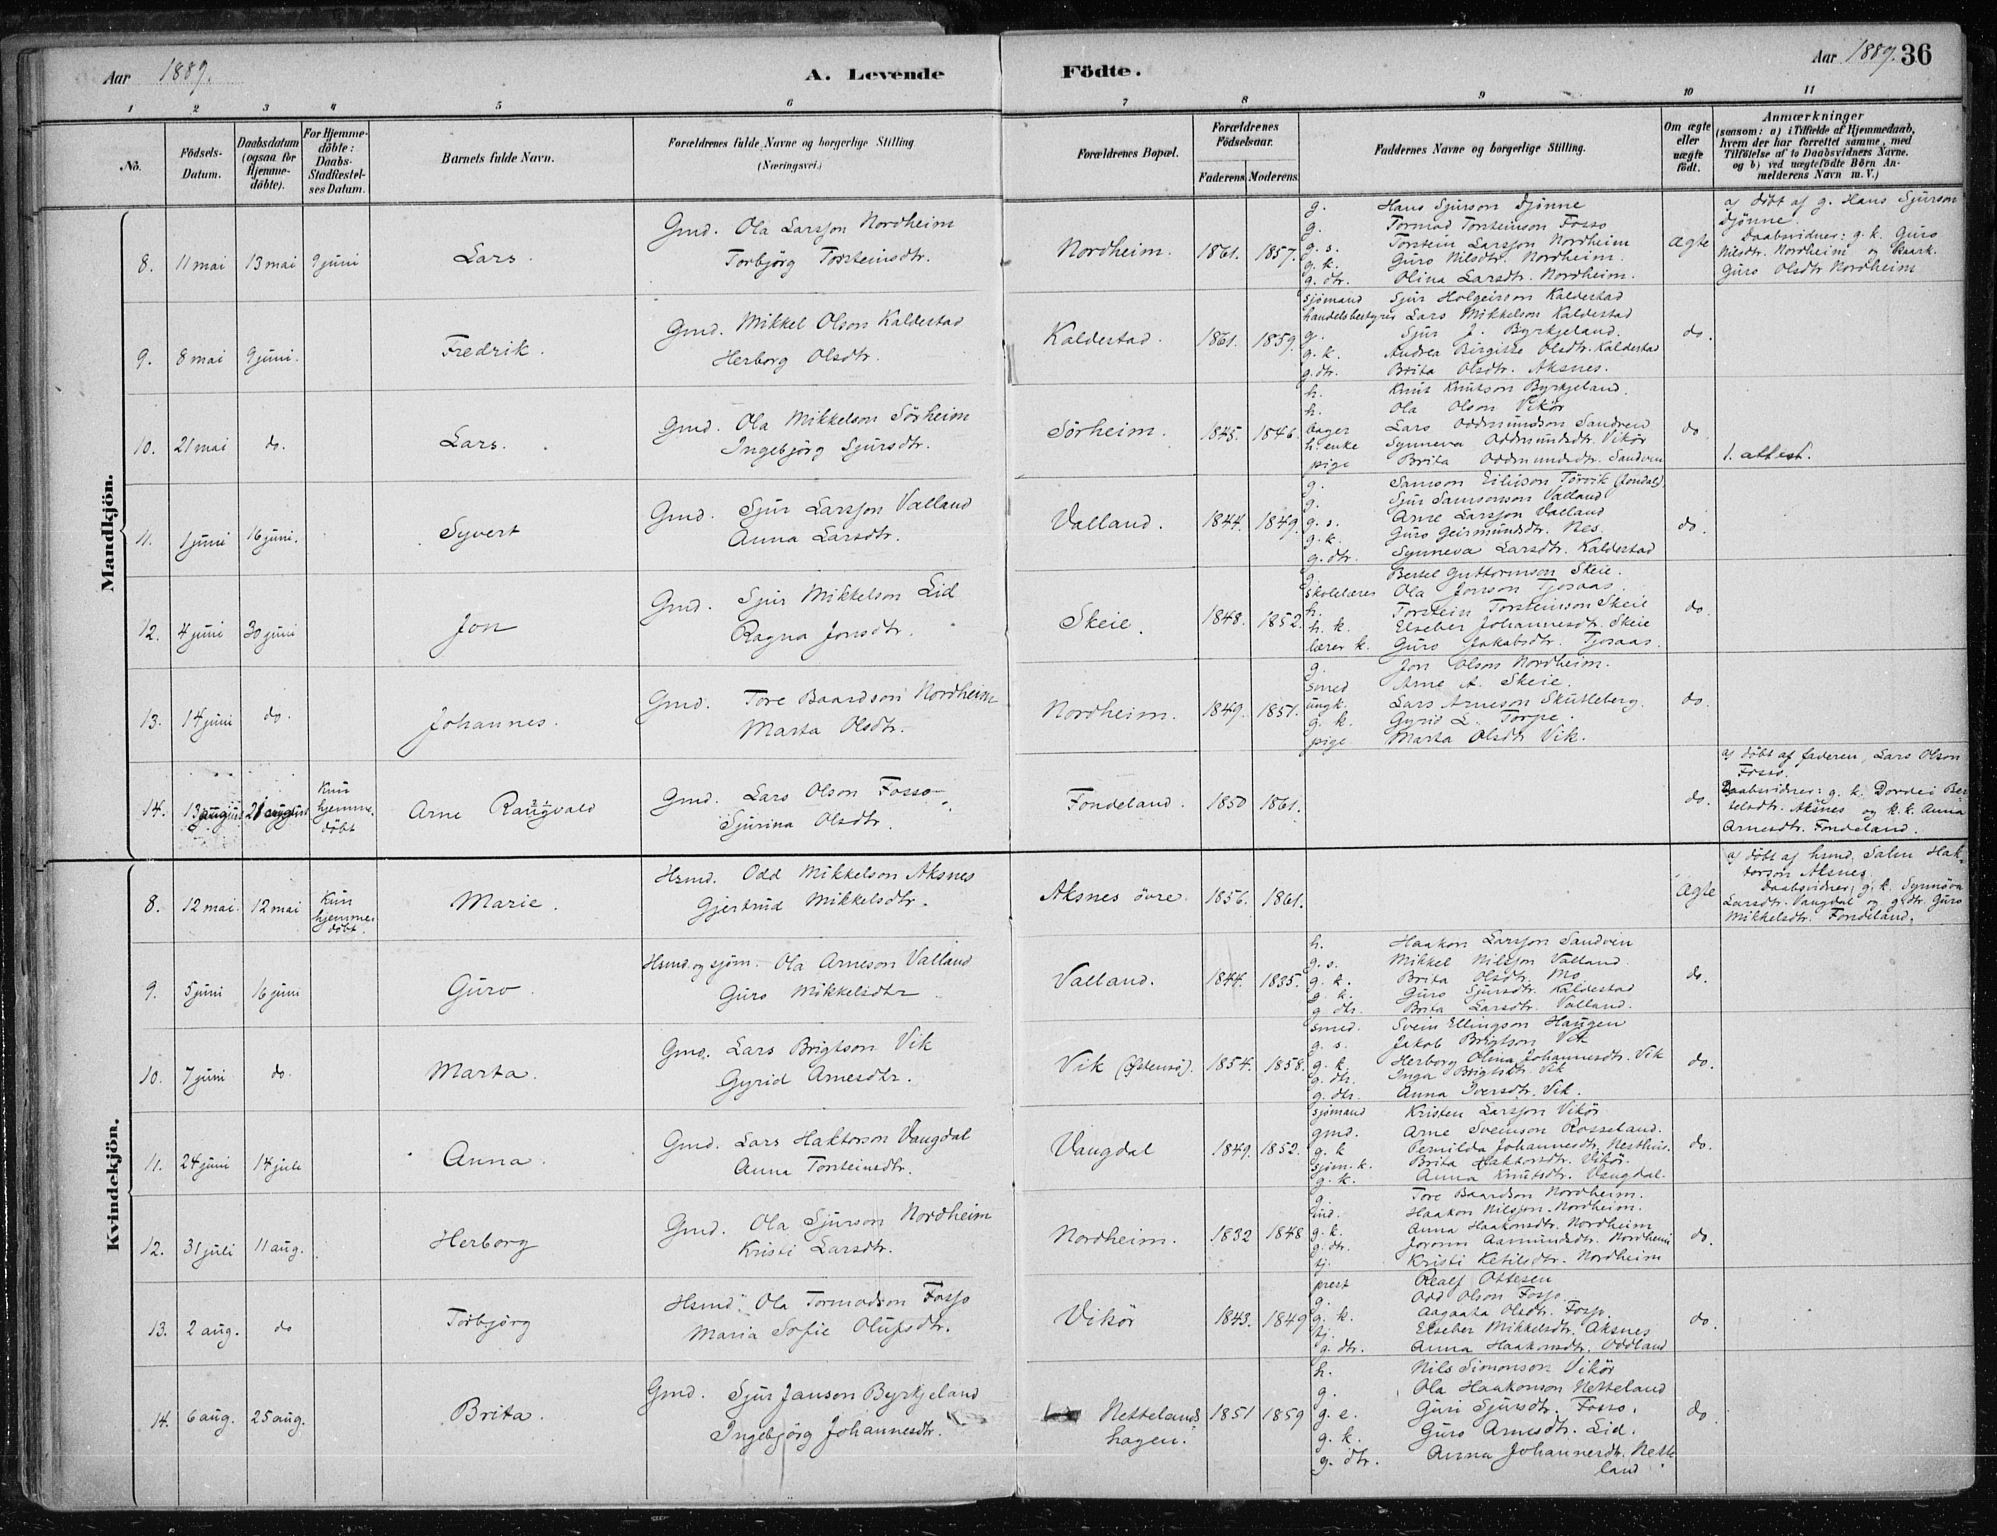 Aar 1889.
A. Levende Födte.
Aar 1889. 36
1 2 3 4 5 6 7 8 9 10 11
No.
Födsels-Datum.
Daabsdatum (ogsaa for Hjemme-döbte).
For Hjemme-döbte: Daabs-Stadfæstel-ses Datum.
Barnets fulde Navn.
Forældrenes fulde Navne og borgerlige Stilling
(Næringsvei.)
Forældrenes Bopæl.
Forældrenes Födselsaar.
Faderens Moderens
Faddernes Navne og borgerlige Stilling.
Om ægte eller uægte födt.
Anmærkninger
(saasom: a) i Tilfælde af Hjemmedaab, hvem der har forrettet samme, med Tilföielse af to Daabsvidners Navne. og b) ved uægtefödte Börn An-melderens Navn m. V.)
Mandkjön.
8. 11 mai 13 mai 9 juni Lars.
Gmd. Ola Larsson Nordheim
Torbjörg Torsteinsdtr.
Nordheim. 1861. 1857.
g. Hans Sjurson Djönne
g. Tormod Torsteinson Fosso
g. s. Torstein Larsson Nordheim
g. k. Guro Nilsdtr. Nordheim.
g. dtr. Olina Larsdtr. Nordheim.
Ægte
a) döbt af g. Hans Sjurson
Djönne.
Daabsvidner: g. k. Guro
Nilsdtr. Nordheim og
Guro Olsdtr Nordheim
9. 8 mai 9 juni. Fredrik.
Gmd. Mikkel Olson Kaldestad
Herborg Olsdtr.
Kaldestad. 1861. 1859.
sjömand Sjur Holgeirson Kaldestad
handelsbestyrer Lars Mikkelson Kaldestad
g. Sjur J. Byrkjeland.
g. k. Andrea Birgitte Olsdtr. Kaldestad
g. dtr. Brita Olsdtr. Aksnes.
do.
10. 21 mai do. Lars.
Gmd. Ola Mikkelson Sörheim
Ingebjörg Sjursdtr.
Sörheim. 1845. 1846.
h. Knut Knutson Byrkjeland.
h. Ola Olson Vikör
bager Lars Oddmundson Sandven
h. enke Synneva Oddmundsdtr. Vikör
pige Brita Oddmundsdtr. Sandven
do
1. attest.
11. 1 juni 16 juni. Syvert
Gmd. Sjur Larsson Valland
Anna Larsdtr.
Valland. 1844. 1849.
g. Samson Eilivson Törvik (Jondal).
g. Sjur Samsonson Valland
g. s. Arne Larsson Valland
g. k. Guro Geirmundsdtr. Nes.
g. dtr. Synneva Larsdtr. Kaldestad
do.
12. 4 juni 30 juni Jon
Gmd. Sjur Mikkelson Lid
Ragna Jonsdtr.
Skeie. 1848. 1852.
g. Bertel Guttormson Skeie.
skolelærer Ola Jonson Tjosaas.
h. Torstein Torsteinson Skeie
h. k. Elseber Johannesdtr. Skeie
lærer k. Guro Jakobsdtr. Tjosaas.
do.
13. 14 juni do. Johannes.
Gmd. Tore Baardson Nordheim
Marta Olsdtr.
Nordheim. 1849. 1851.
g. Jon Olson Nordheim.
smed Arne A. Skeie.
ungk. Lars Arneson Skutleberg.
g. k. Gyrid L. Torpe.
pige Marta Olsdtr Vik.
do.
14. 13 august Kun hjemme-döbt Arne Raugvald
Gmd. Lars Olson Fosso.
Sjurina Olsdtr.
Fondeland. 1850 1861.
do.
a) döbt af faderen, Lars Olson
Fosso.
Daabsvidner: g. k. Dordei Ber-
telsdtr. Aksnes og k. k. Anna
Arnesdtr. Fondeland.
Kvindekjön.
8. 12 mai. 12 mai Kun hjemme-döbt. Marie.
Hsmd. Odd Mikkelson Aksnes
Gjertrud Mikkelsdtr.
Aksnes övre. 1856. 1861.
Ægte
a) döbt af hsmd. Salm Hak-
torson Aksnes
Daabsvidner: g. k. Synnöva
Larsdtr. Vangdal og g. dtr. Guro
Mikkelsdtr. Fondeland.
9. 5 juni 16 juni Guro.
Hsmd. og sjöm. Ola Arneson Valland
Guro Mikkelsdtr
Valland. 1844. 1835.
h. Haakon Larsson Sandven
g. s. Mikkel Nilsson Valland.
g. k. Brita Olsdtr. Mo
g. k. Guro Sjursdtr. Kaldestad
g. dtr. Brita Larsdtr. Valland.
do.
10. 7 juni do. Marta.
Gmd. Lars Brigtson Vik
Gyrid Arnesdtr.
Vik (Östensö). 1854. 1858.
smed. Svein Ellingson Haugen
g. s. Jakob Brigtson Vik
g. k. Herborg Olina Johannesdtr. Vik
g. dtr. Inga Brigtsdtr. Vik
g. dtr. Anna Iversdtr. Vik.
do.
11. 24 juni 14 juli Anna.
Gmd. Lars Haktorson Vangdal
Anna Torsteinsdtr.
Vangdal 1849. 1852.
sjömand Kristen Larsson Vikör
gmd. Arne Sveinson Rosseland.
g. k Pernilda Johannesdtr. Nesthus.
sjöm. k. Brita Haktorsdtr. Vikör.
g. k. Anna Knutsdtr. Vangdal.
do.
12. 31 juli 11 aug. Herborg
Gmd. Ola Sjurson Nordheim
Kristi Larsdtr.
Nordheim. 1832 1848
g. Tore Baardson Nordheim.
ind. Haakon Nilsson Nordheim.
g. k. Anna Haakonsdtr. Nordheim
g. dtr. Joronn Aamundsdtr. Nordheim
tj. Kristi Ketilsdtr. Nordheim
do.
13. 2 aug. do Torbjörg
Hsmd. Ola Tormodson Fosso
Maria Sofie Olufsdtr.
Vikör 1843. 1849
prest Realf Ottesen
g. Odd Olson Fosso.
g. k. Aagaata Olsdtr. Fosso
tj. Elseber Mikkelsdtr. Aksnes
g. dtr. Anna Haakonsdtr. Oddland
do.
14. 6 aug. 25 aug. Brita.
Gmd. Sjur Janson Byrkjeland
Ingebjörg Johannesdtr.
Nettelands
hagen. 1851 1859
h. Nils Simonson Vikör
g. Ola Haakonson Netteland
g. e. Guri Sjursdtr. Fosso.
g. k. Guro Arnesdtr. Lid.
g. dtr. Anna Johannesdtr. Nette-
land
do.